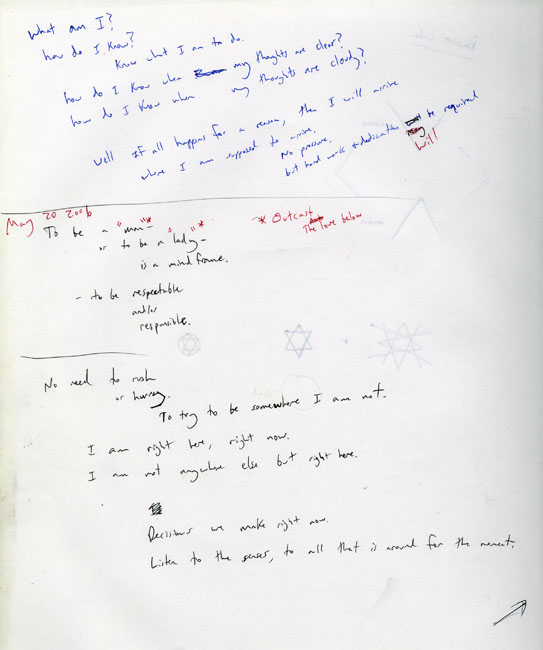 What am I?
how do I know?
know what I am to do.
how do I know when my thoghts are clear?
how do I know when my thoughts are cloudy?
Well If all happens for a reason, then I will arrive
where I am supposed to arrive.
No pressure.
but hard work + dedication will be required
May 20 2006
To be a "man"*-
or to be a "lady"*-
is a mind frame.
* Outcast
The love below
- to be respectable
and/or
responsible.
No need to rush
or hurry.
To try to be somewhere I am not.
I am right here, right now.
I am not anywhere else but right here.
Decisions we make right now.
Listen to the senses, to all that is around for the moment.